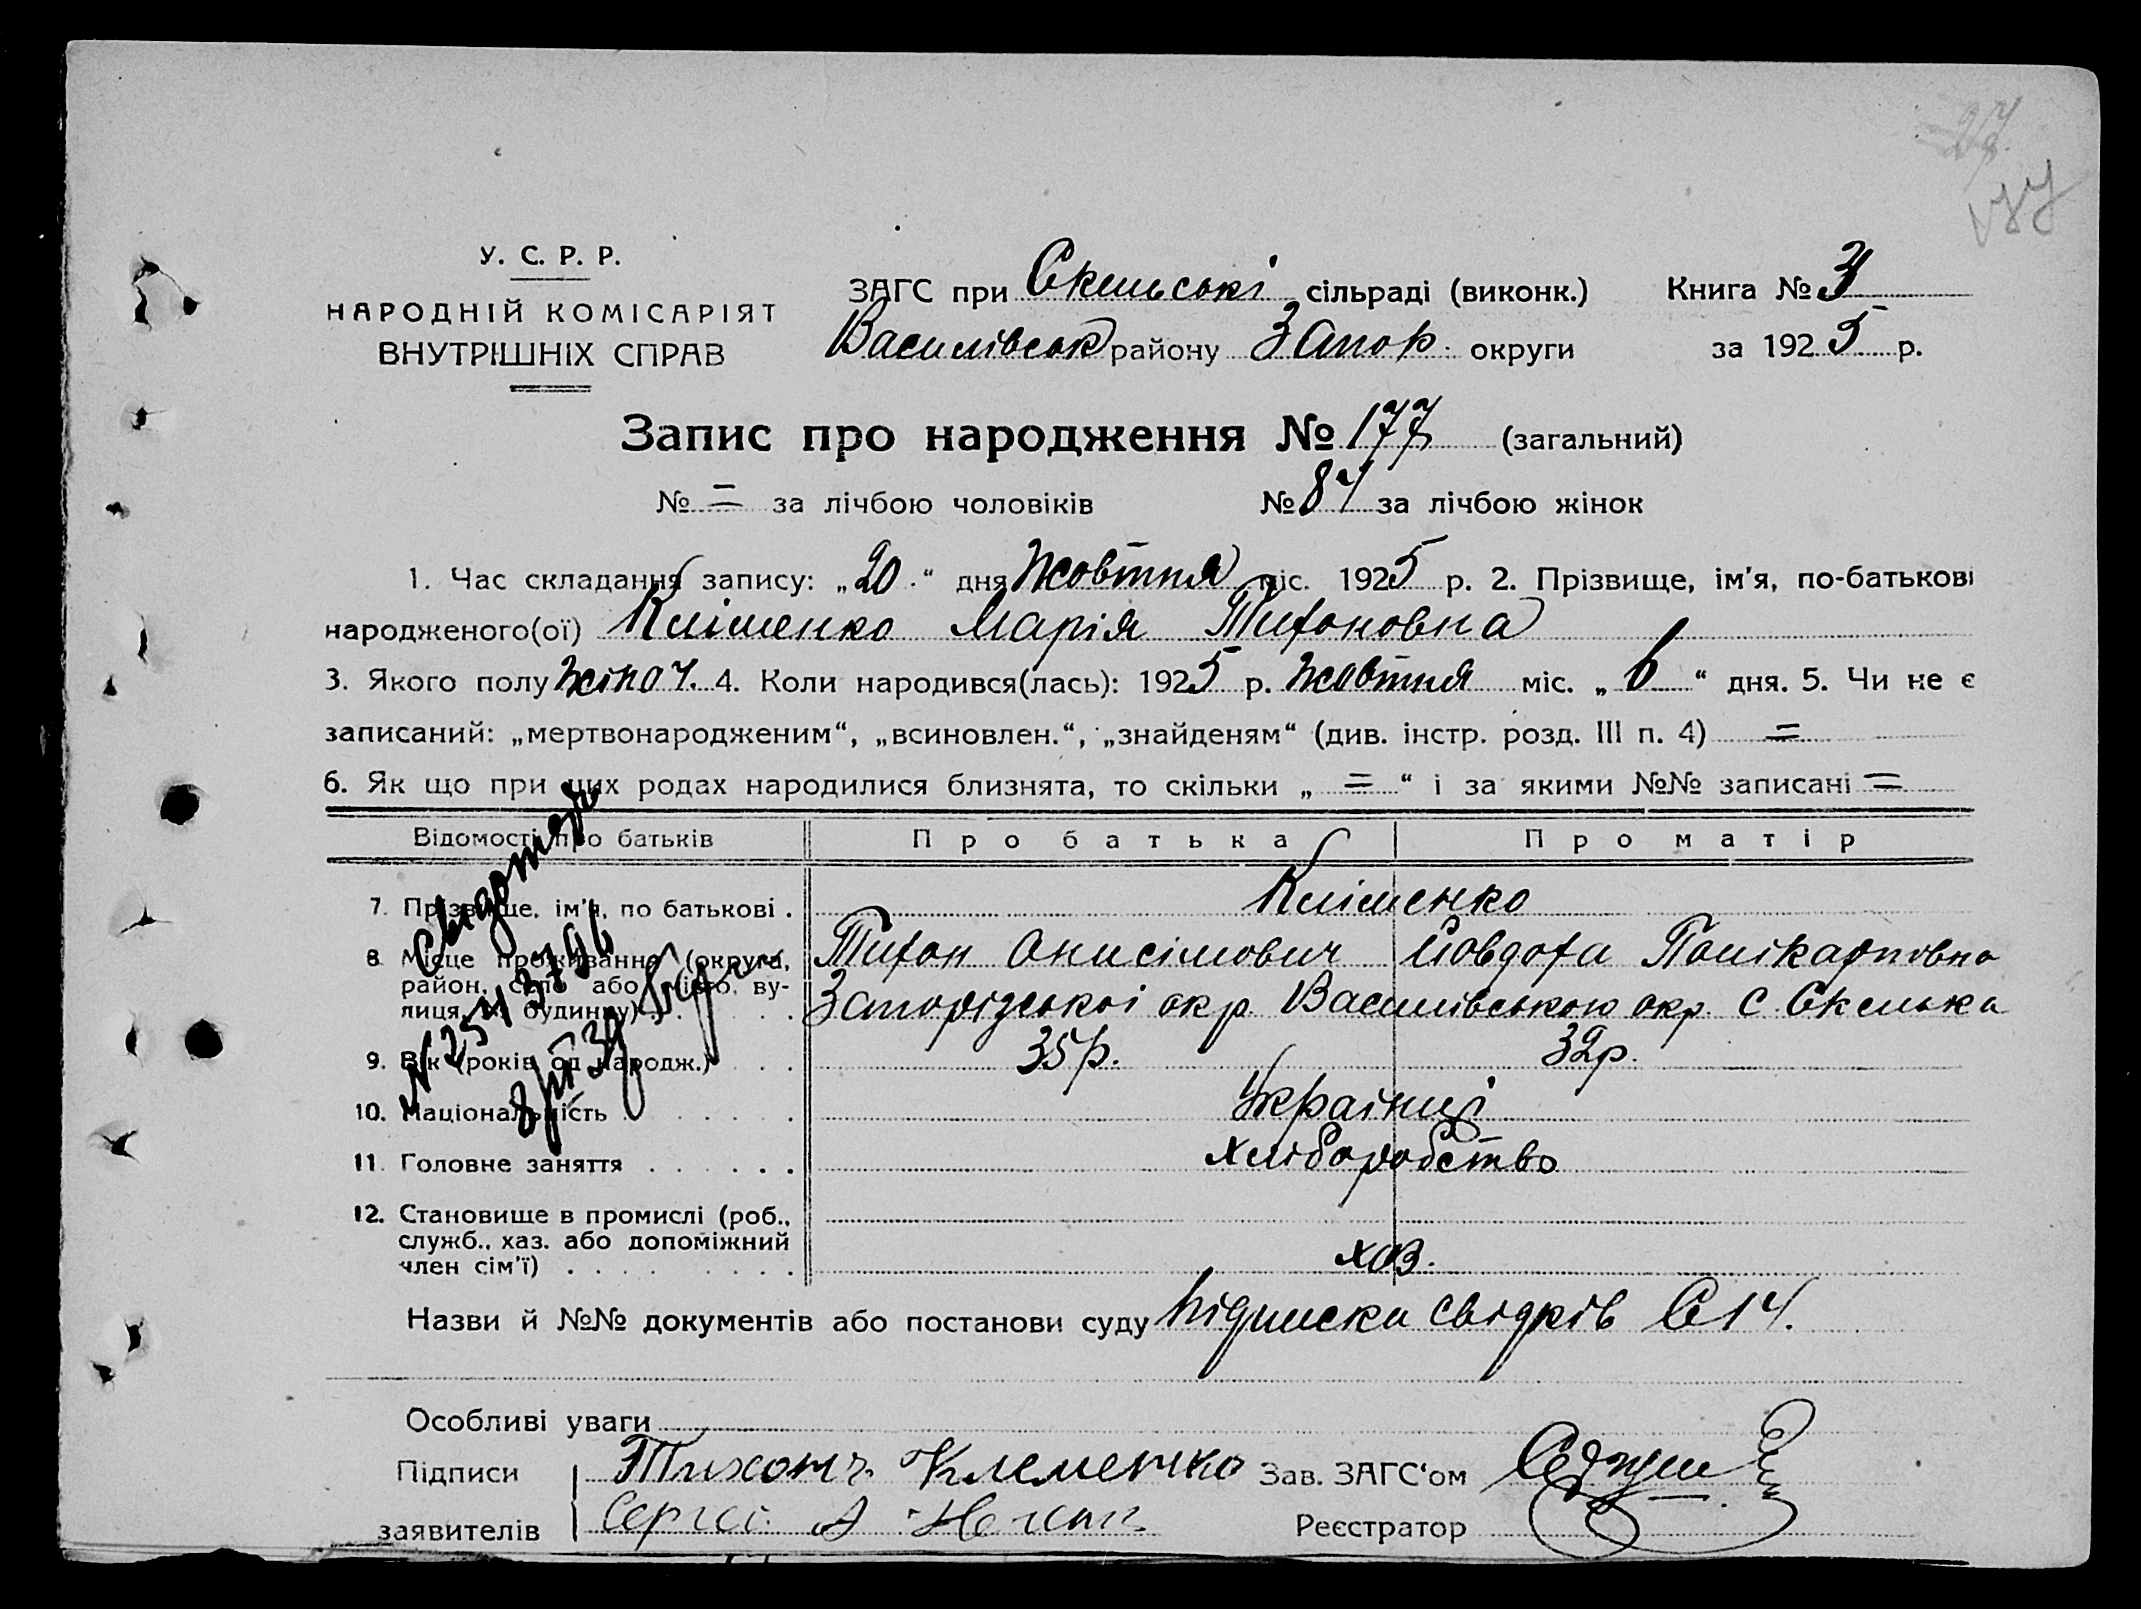 77
У. С. Р. Р.
НАРОДНІЙ КОМІСАРІЯТ
ВНУТРІШНІХ СПРАВ
ЗАГС при Скельські сільраді (виконк.) Книга № 3
Василівськ району Запор. округи за 1925 р.
Запис про народження № 177 (загальний)
№ = за лічбою чоловіків № 84 за лічбою жінок
1. Час складання запису: „20“ дня Жовтня міс. 1925 р. 2. Прізвище, ім'я, по-батькові
народженого(ої) Кліменко Марія Тифоновна
3. Якого полу жіноч. 4. Коли народився(лась): 1925 р. Жовтня міс. „6“ дня. 5. Чи не є
записаний: „мертвонародженим“, „всиновлен.“, „знайденям“ (див. інстр. розд. III п. 4) =
6. Як що при цих родах народилися близнята, то скільки „=“ і за якими №№ записані =
Відомості про батьків Про батька Про матір
7. Прізвище, ім'я, по батькові . Кліменко
8. Місце проживання (округа, Тифон Онисімович Йовдофа Полікарповна
район, село або місто, ву-
лиця, № будинку) . . . . Запорізькоі окр. Василівського окр. С. Скелька
9. Вік (років од народж.) . . . 35 р. 32 р.
10. Національність . . . . . . Українці
11. Головне заняття . . . . . . хліборобство
12. Становище в промислі (роб.,
служб., хаз. або допоміжний
член сім'ї) . . . . . . . . хоз.
Назви й №№ документів або постанови суду підписка свідків С 14.
Особливі уваги
Підписи Тихонъ Клеменко Зав. ЗАГС'ом
заявителів Сергей А Реєстратор